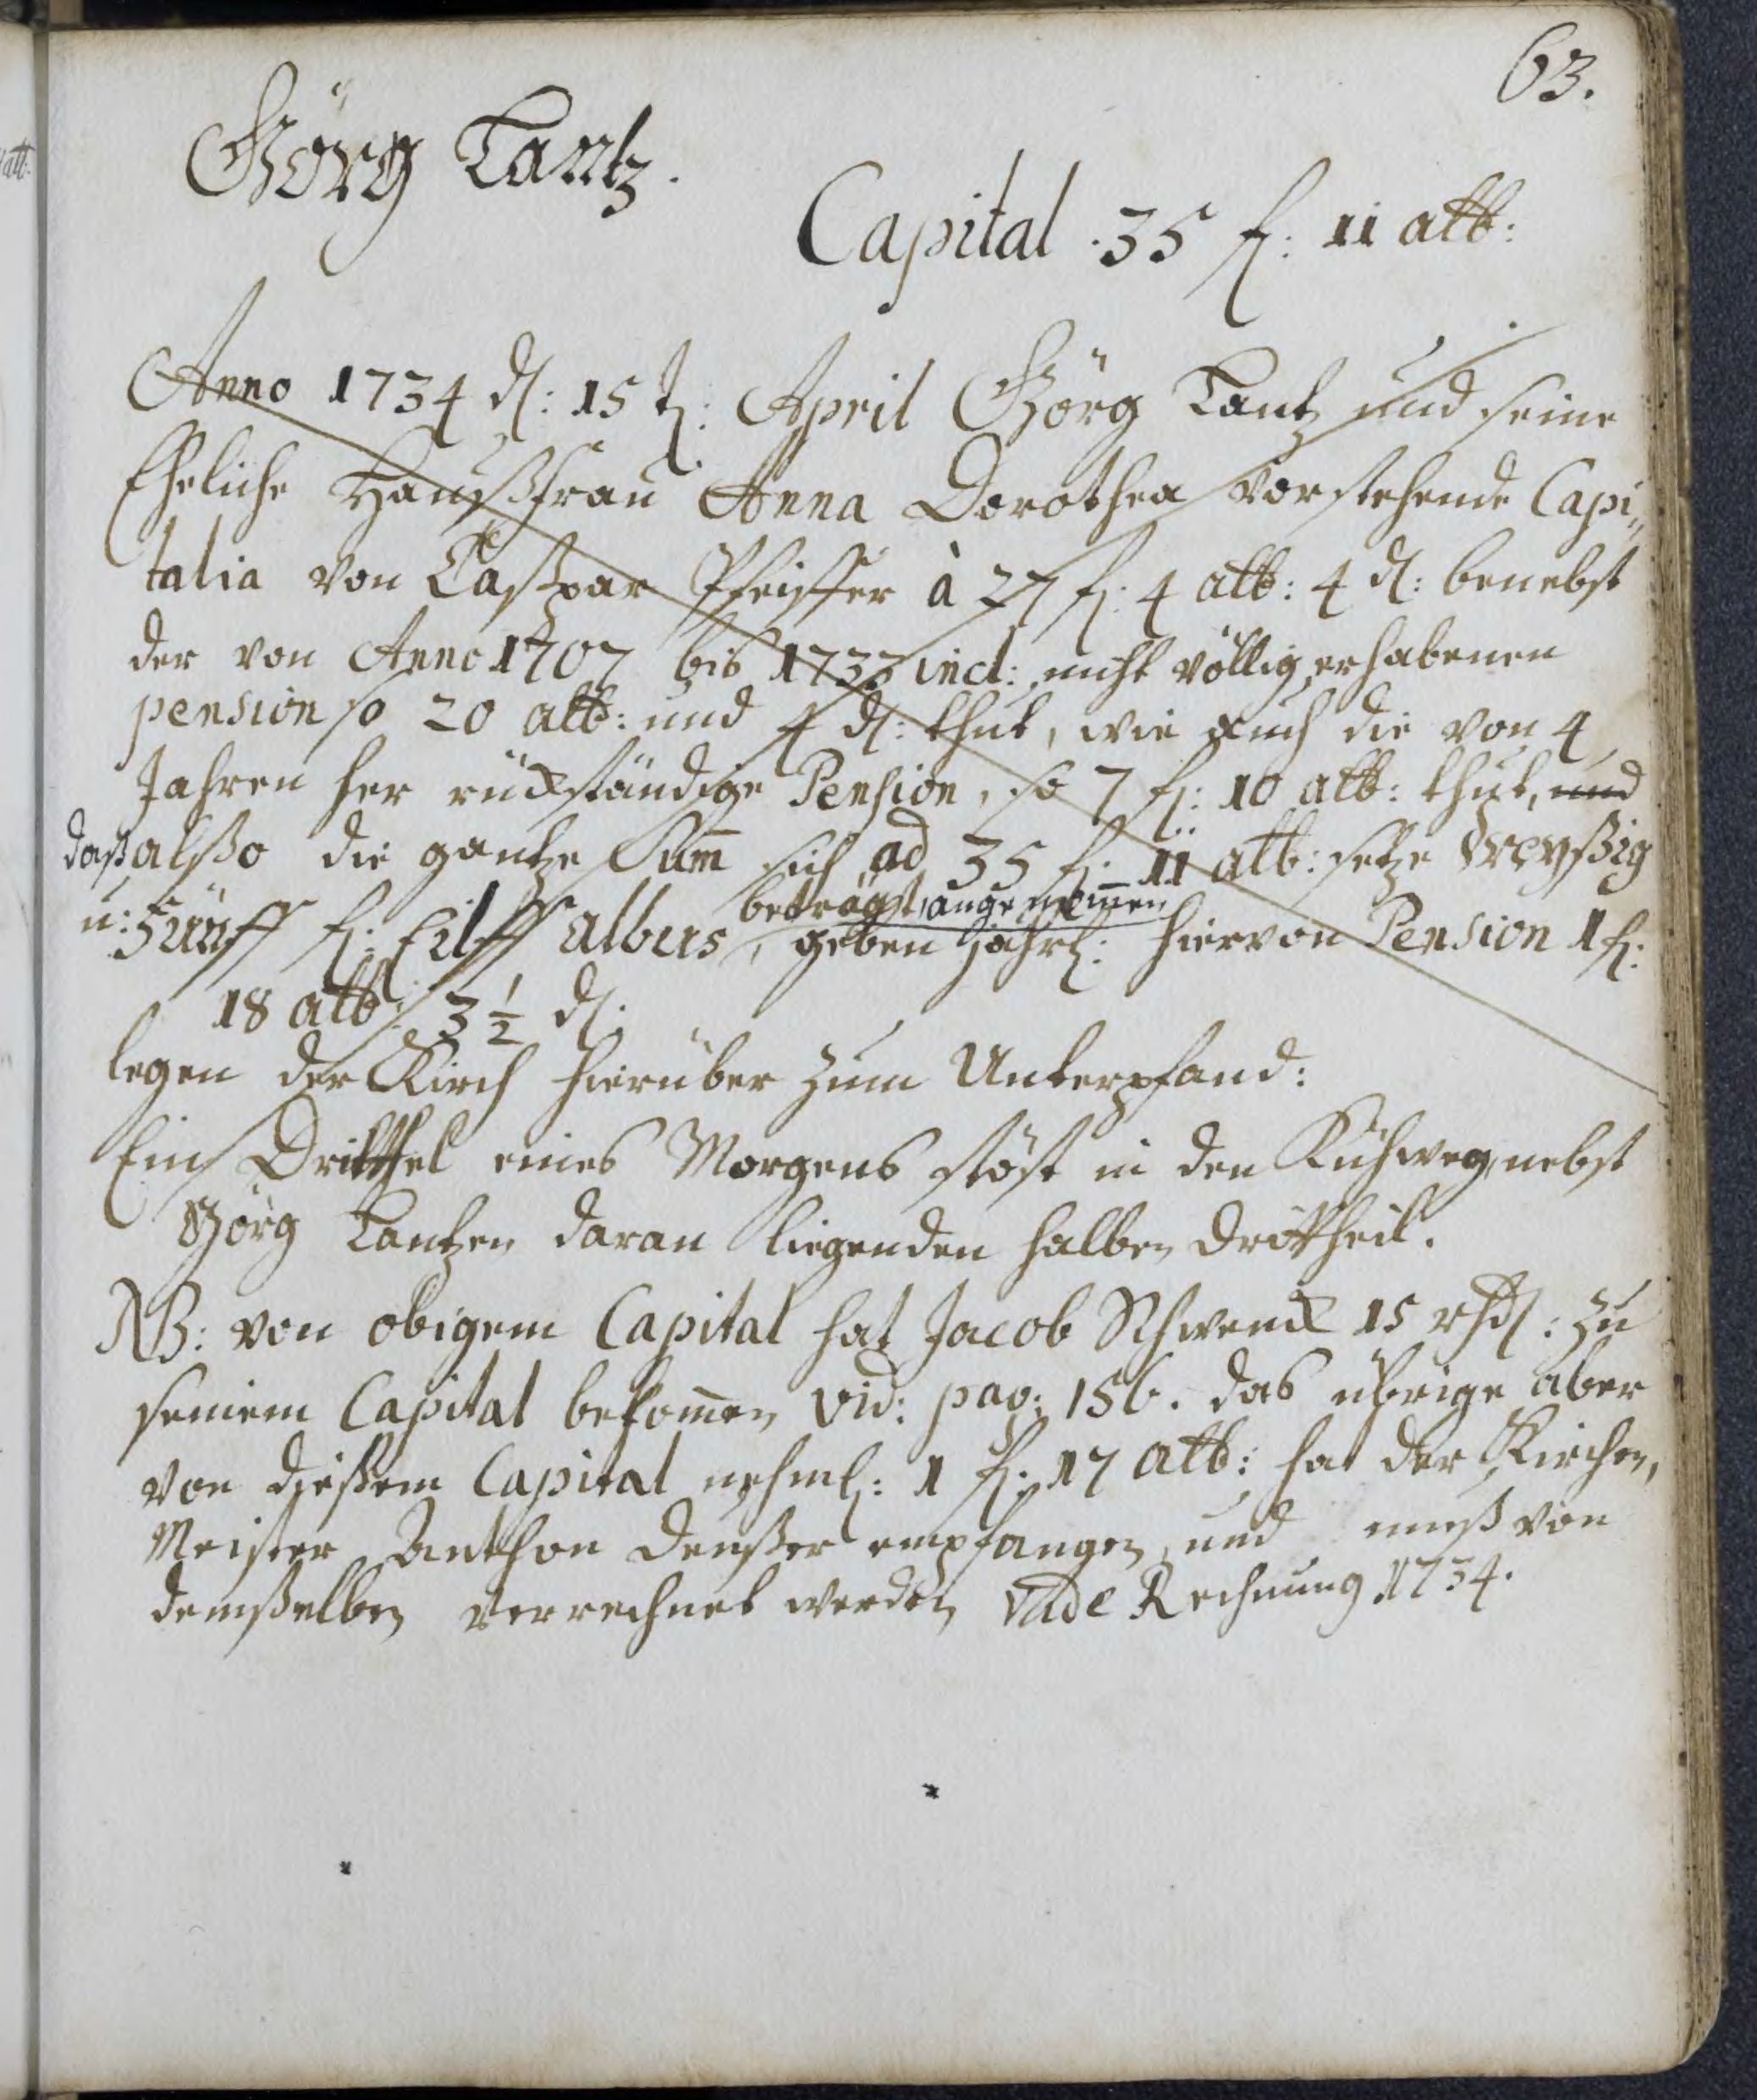 63.
Görg Tantz.
Capital 35 fl: 11 alb:
Anno 1734 d: 15t: April Görg Tantz und seine
Eheliche Haußfrau Anna Dorothea vorstehende Capi„
talia von Caßpar Pfeiffer à 27 fl: 4 alb: 4 d: benebst
der von Anno 1707 bis 1733 incl: nicht völlig erhabenen
pension so 20 alb: und 4 d: thut, wie auch die von 4
Jahren her rückständige Pension, so 7 fl: 10 alb: thut, und
daß alßo die gantze Sum̄ sich ad 35 fl: 11 alb: setze Dreyßig
beträgt, angenom̄en
u: Fünff fl: Eilff albus, geben Jährl: hiervon Pension 1 fl:
18 alb: 3 ½ d.
legen der Kirch hierüber zum Unterpfand:
Ein Dritthel eines Morgens stöst in den Kühweg, nebst
Görg Tantzen daran liegenden halben Drittheil.
NB: von obigem Capital hat Jacob Schwenck 15 rthl: zu
seinem Capital bekom̄en vid: pag: 156. das übrige aber
von dießem Capital nehml: 1 fl: 17 alb: hat der Kirchen,
Meister Anthon Deußer empfangen, und muß von
demßelben verrechnet werden vide Rechnung 1734.